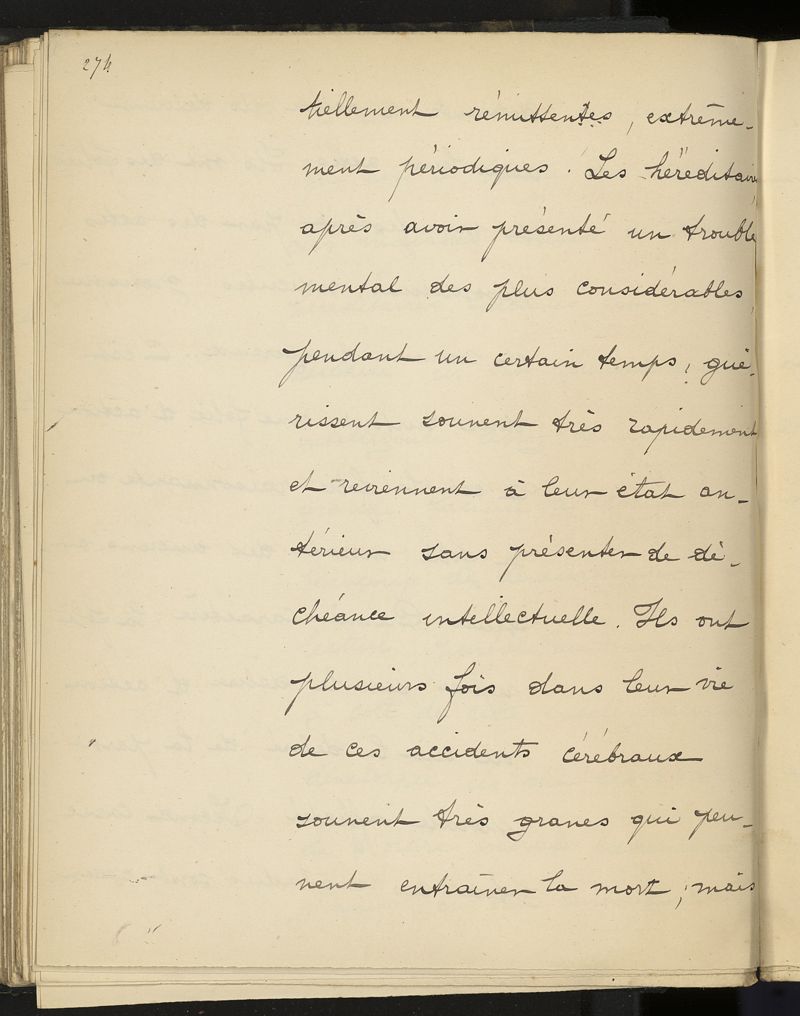 274
tiellement rémittentes, extrême-
ment périodiques. Les héréditaires,
après avoir présenté un trouble
mental des plus considérables
pendant un certain temps, gué-
rissent souvent très rapidement
et reviennent à leur état an-
térieur sans présenter de dé-
chéance intellectuelle. Ils ont
plusieurs fois dans leur vie
de ces accidents cérébraux
souvent très graves qui peu-
vent entraîner la mort, mais